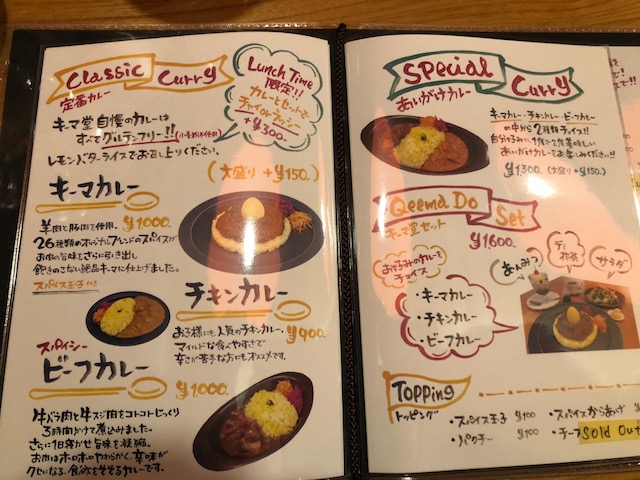 Classic Curry
定番カレー
キーマ堂自慢のカレーは
すべてグルテンフリー!!(小麦粉不使用)
レモンバターライスでお召し上りください。
Lunch Time
限定!!
カレーとセットで
チャイorラッシー
+¥300-
(大盛り+¥150.)
キーマカレー
羊肉と豚肉を使用。 ¥1000.
26種類のオリジナルブレンドのスパイスが
お肉の旨味をさらに引き出し
飽きのこない絶品キーマに仕上げました。
スパイス玉子付き
チキンカレー
お子様にも人気のチキンカレー。 ¥900.
マイルドな食べやすさで
辛さが苦手な方にもオススメです。
スパイシー
ビーフカレー
¥1000.
牛バラ肉と牛スジ肉をコトコトじっくり
3時間かけて煮込みました。
さらに1日寝かせ旨味を凝縮。
お肉はホロホロやわらかく、辛味が
クセになる、食欲をそそるカレーです。
Special Curry
あいがけカレー
キーマカレー・チキンカレー・ビーフカレー
の中から2種類チョイス!!
あいがけカレーをお楽しみください!!
¥1300.(大盛り+¥150.)
Qeema Do Set
キーマ堂セット
¥1600.
お好みのカレーを
チョイス
・キーマカレー
・チキンカレー
・ビーフカレー
あんみつ
サラダ
Topping
トッピング
・スパイス玉子 ¥100
・スパイスからあげ
・パクチー ¥100
・チーズ
Sold Out